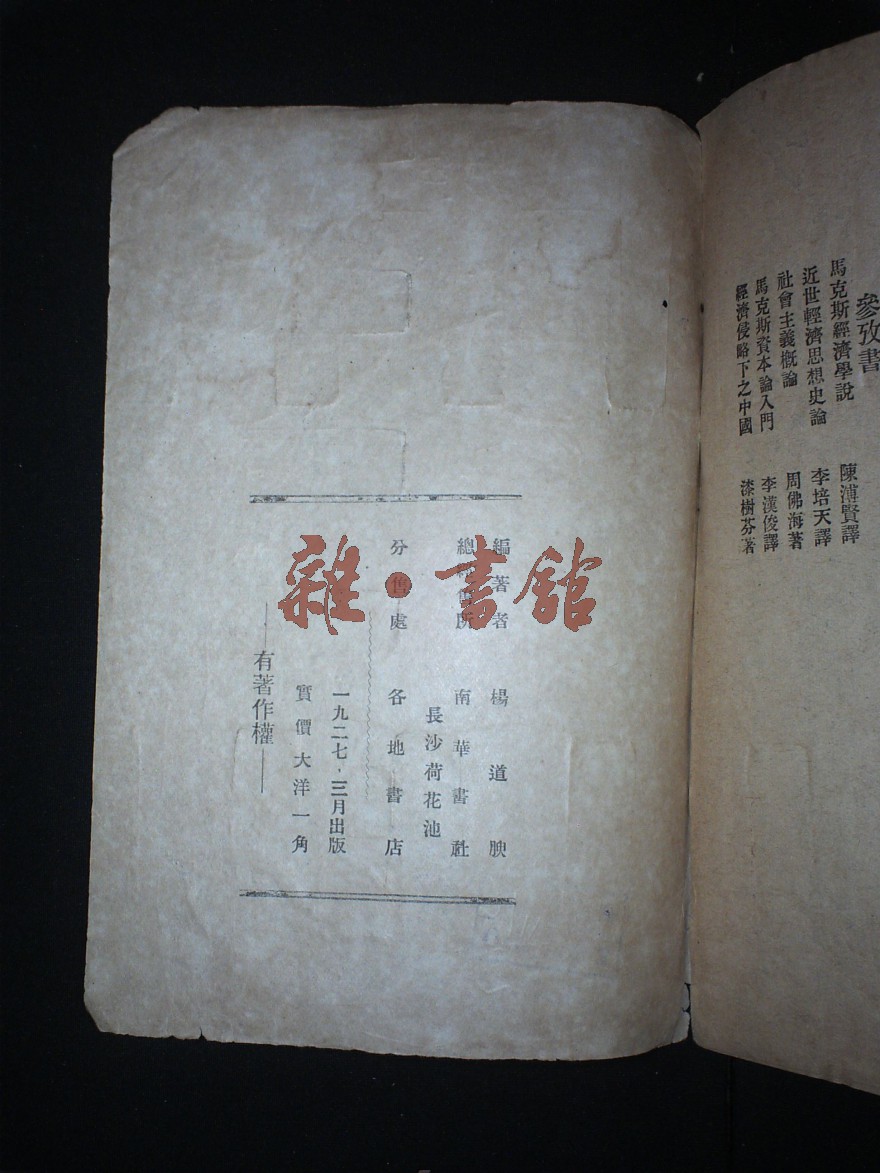 參攷書
馬克斯經濟學說 陳溥賢譯
近世輕濟思想史論 李培天譯
社會主義概論 周佛海著
馬克斯資本論入門 李漢俊譯
經濟侵略下之中國 漆樹芬著
編著者 楊道腴
總 所 南華書社
長沙荷花池
分售處 各地書店
一九二七·三月出版
實價大洋一角
有著作權
雜·書館